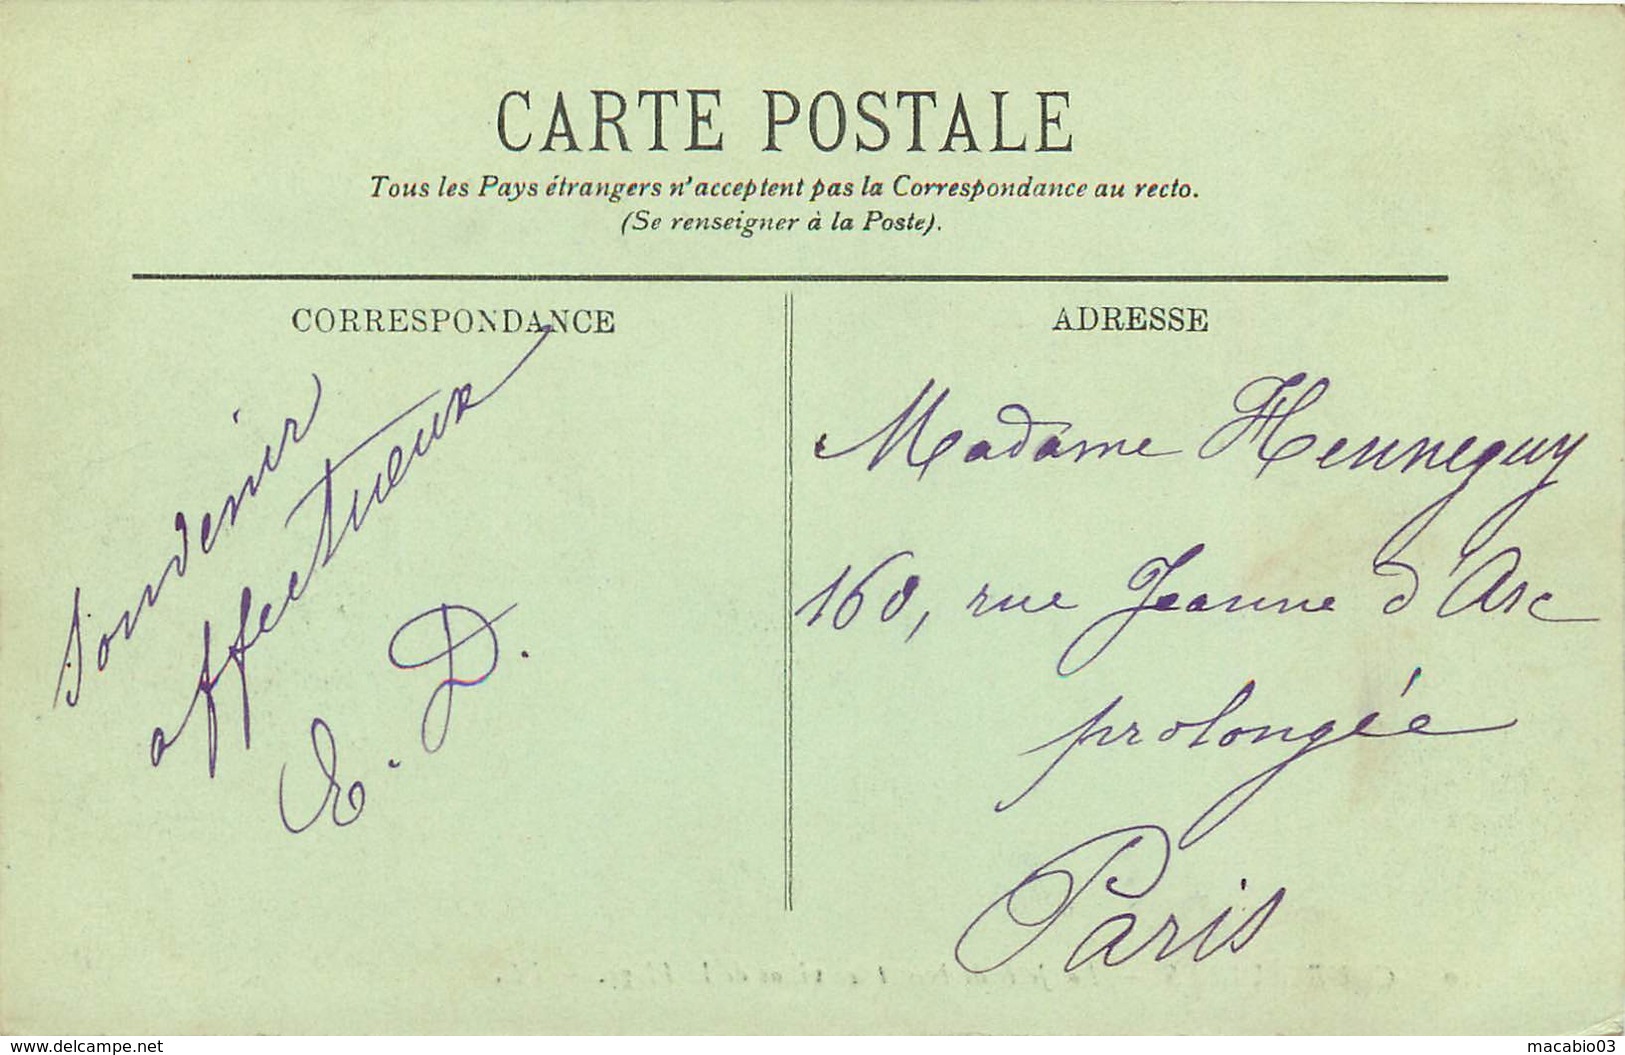 CARTE POSTALE
Tous les Pays étrangers n'acceptent pas la Correspondance au recto.
(Se renseigner à la Poste).
CORRESPONDANCE
Souvenir
affectueux
E. D.
ADRESSE
Madame Henneguy
160, rue Jeanne d'Arc
prolongée
Paris
www.delcampe.net
macabio03